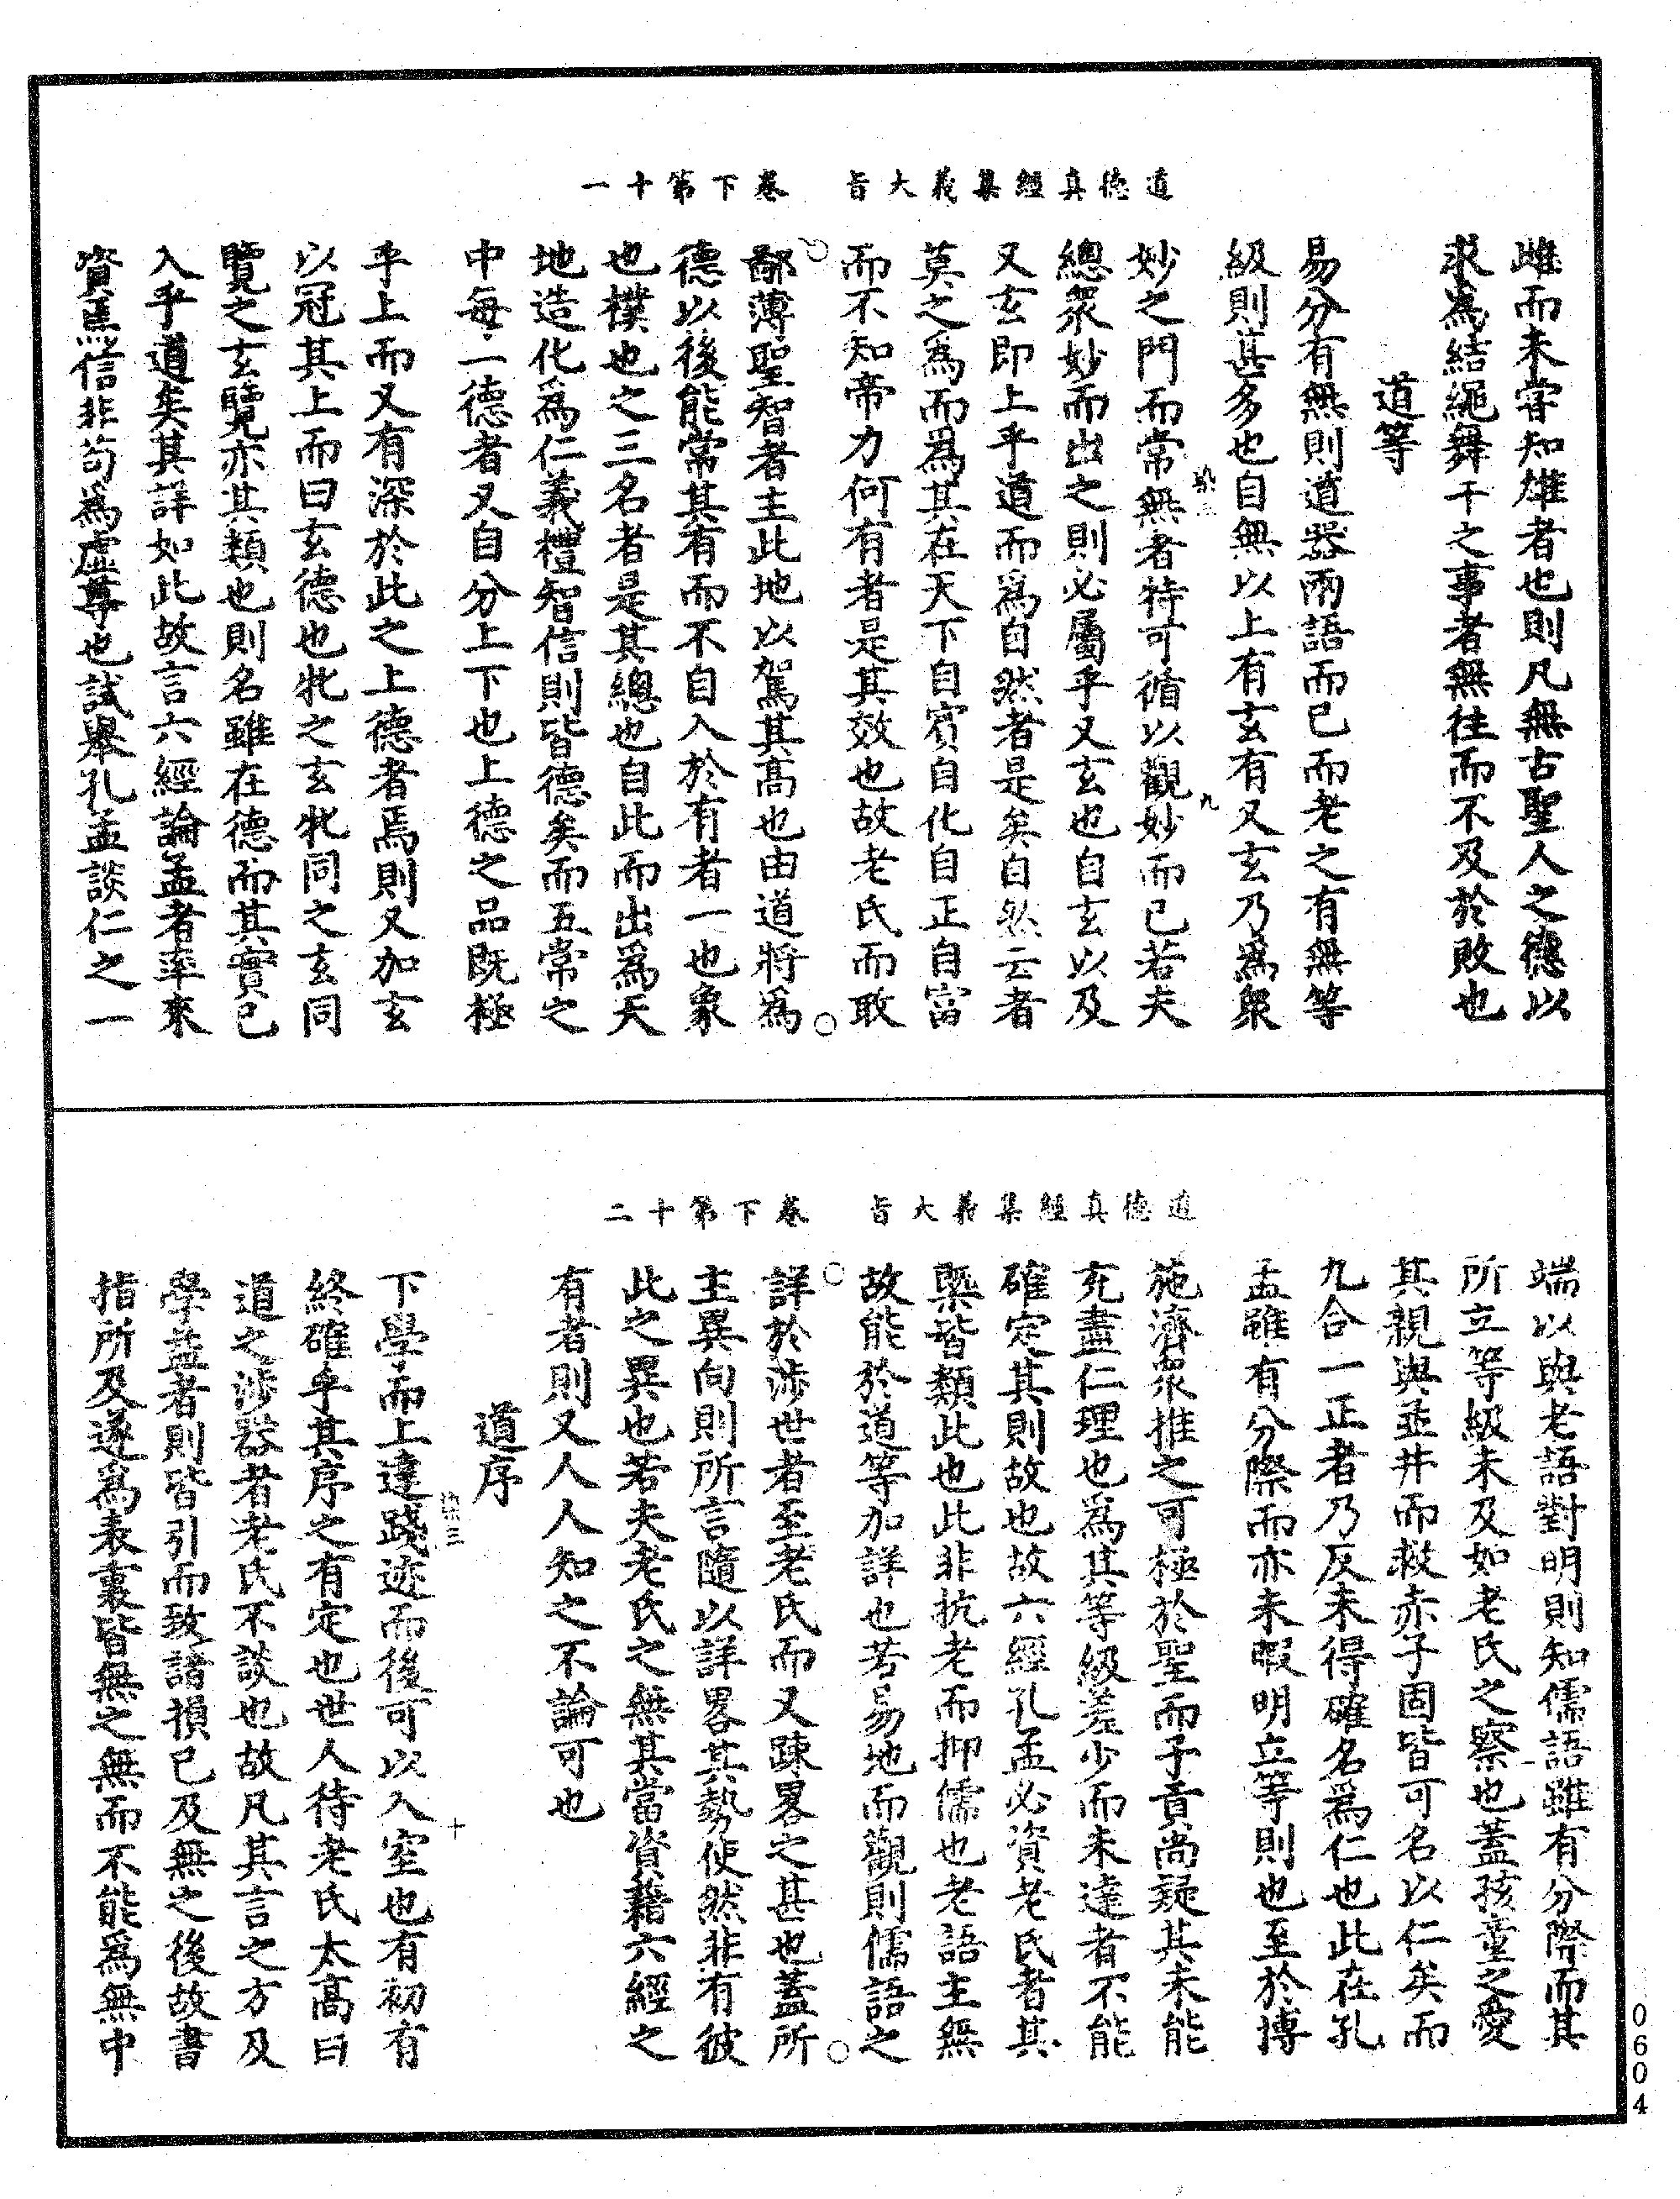 道德真經集義大旨　卷下第十一
雌而未甞知雄者也則凡無古聖人之德以
求為結繩舞干之事者無往而不及於敗也
道等
易分有無則道器兩語而已而老之有無等
級則甚多也自無以上有玄有又玄乃為衆
妙之門而常無者特可循以觀妙而已若夫
總衆妙而出之則必屬乎又玄也自玄以及
又玄即上乎道而為自然者是矣自然云者
莫之為而為其在天下自賓自化自正自富
而不知帝力何有者是其效也故老氏而敢
鄙薄聖智者主此地以駕其高也由道將為
德以後能常其有而不自入於有者一也象
也樸也之三名者是其總也自此而出為天
地造化為仁義禮智信則皆德矣而五常之
中每一德者又自分上下也上德之品既極
乎上而又有深於此之上德者焉則又加玄
以冠其上而曰玄德也牝之玄牝同之玄同
覽之玄覽亦其類也則名雖在德而其實已
入乎道矣其詳如此故言六經論孟者率來
資焉信非苟為虛尊也試舉孔孟談仁之一
道德真經集義大旨　卷下第十二
端以與老語對明則知儒語雖有分際而其
所立等級未及如老氏之察也蓋孩童之愛
其親與盂井而救赤子固皆可名以仁矣而
九合一正者乃反未得確名為仁也此在孔
孟雖有分際而亦未暇明立等則也至於博
施濟衆推之可極於聖而子貢尚疑其未能
充盡仁理也為其等級差少而未達者不能
確定其則故也故六經孔孟必資老氏者其
槩皆類此也此非抗老而抑儒也老語主無
故能於道等加詳也若易地而觀則儒語之
詳於涉世者至老氏而又疎畧之甚也蓋所
主異向則所言隨以詳畧其勢使然非有彼
此之異也若夫老氏之無其當資藉六經之
有者則又人人知之不論可也
道序
下學而上達踐迹而後可以入室也有初有
終確乎其序之有定也世人待老氏太高曰
道之涉器者老氏不談也故凡其言之方及
學益者則皆引而致諸損已及無之後故書
指所及遂為表裏皆無之無而不能為無中
0604